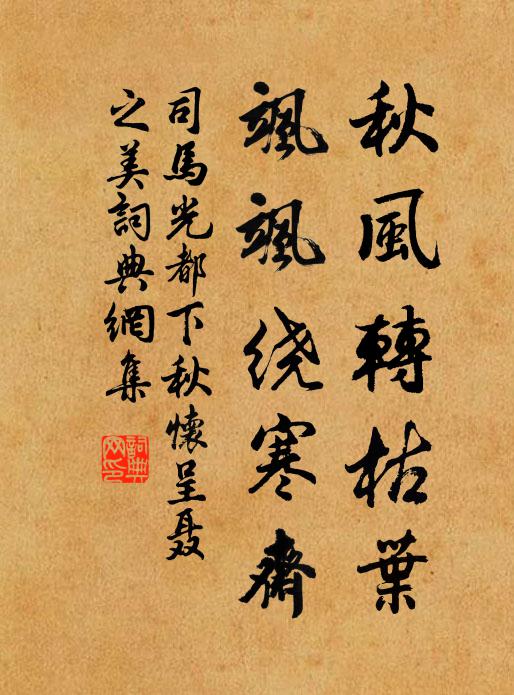 秋風轉枯葉
颯颯绕寒齋
司馬光都下秋懷呈聂
之美詞典網集
詞典网印